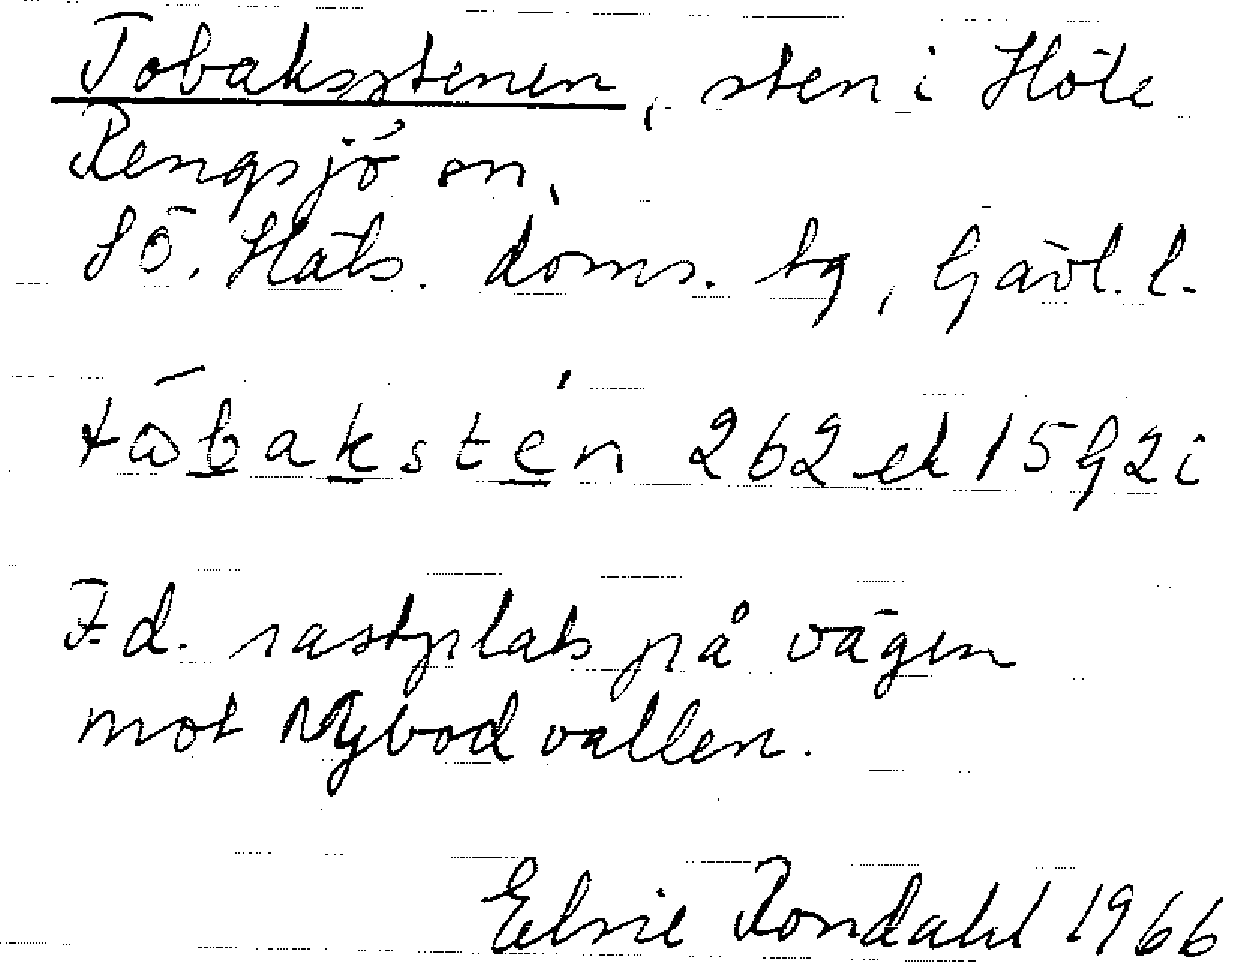 Tobaksstenen, sten i Höle
Rengsjö sn,
Sö. Häls. doms. tg, Gävl. l.
tåbakstén 262 ek 15G2i
F.d. rastplats på vägen
mot Nybodvallen.
Elsie Rondahl 1966